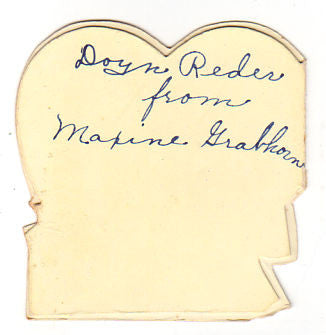 Doyn Reder
from
Maxine Grabhorn